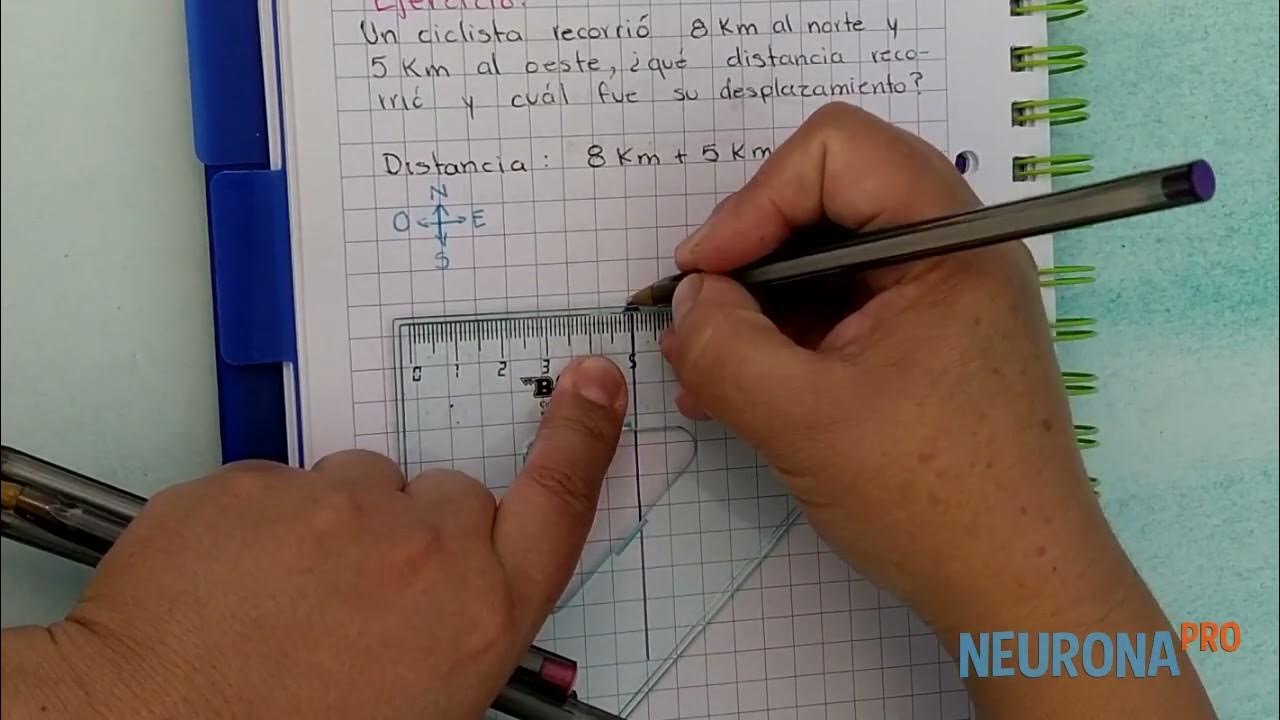 Ejercicio:
Un ciclista recorrió 8 Km al norte y
5 Km al oeste, ¿qué distancia reco-
rrió y cuál fue su desplazamiento?
Distancia: 8 Km + 5 Km
N
O E
S
0 1 2 3 5
B
NEURONA PRO